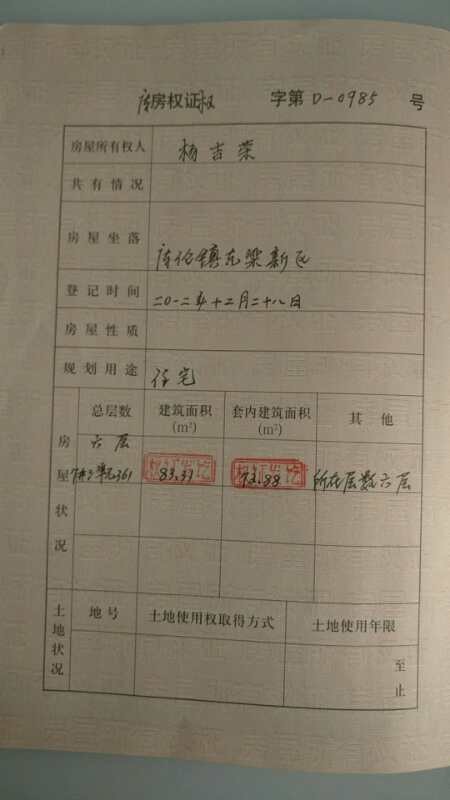 房权证 字第 D-0985 号
房屋所有权人 杨吉荣
共有情况
房屋坐落 镇东梁新区
登记时间 二〇一二年十二月二十八日
房屋性质
规划用途 住宅
房屋状况
总层数 建筑面积(m²) 套内建筑面积(m²) 其他
六层
单元361 83.31 73.88 所在层数六层
土地状况
地号 土地使用权取得方式 土地使用年限
至
止